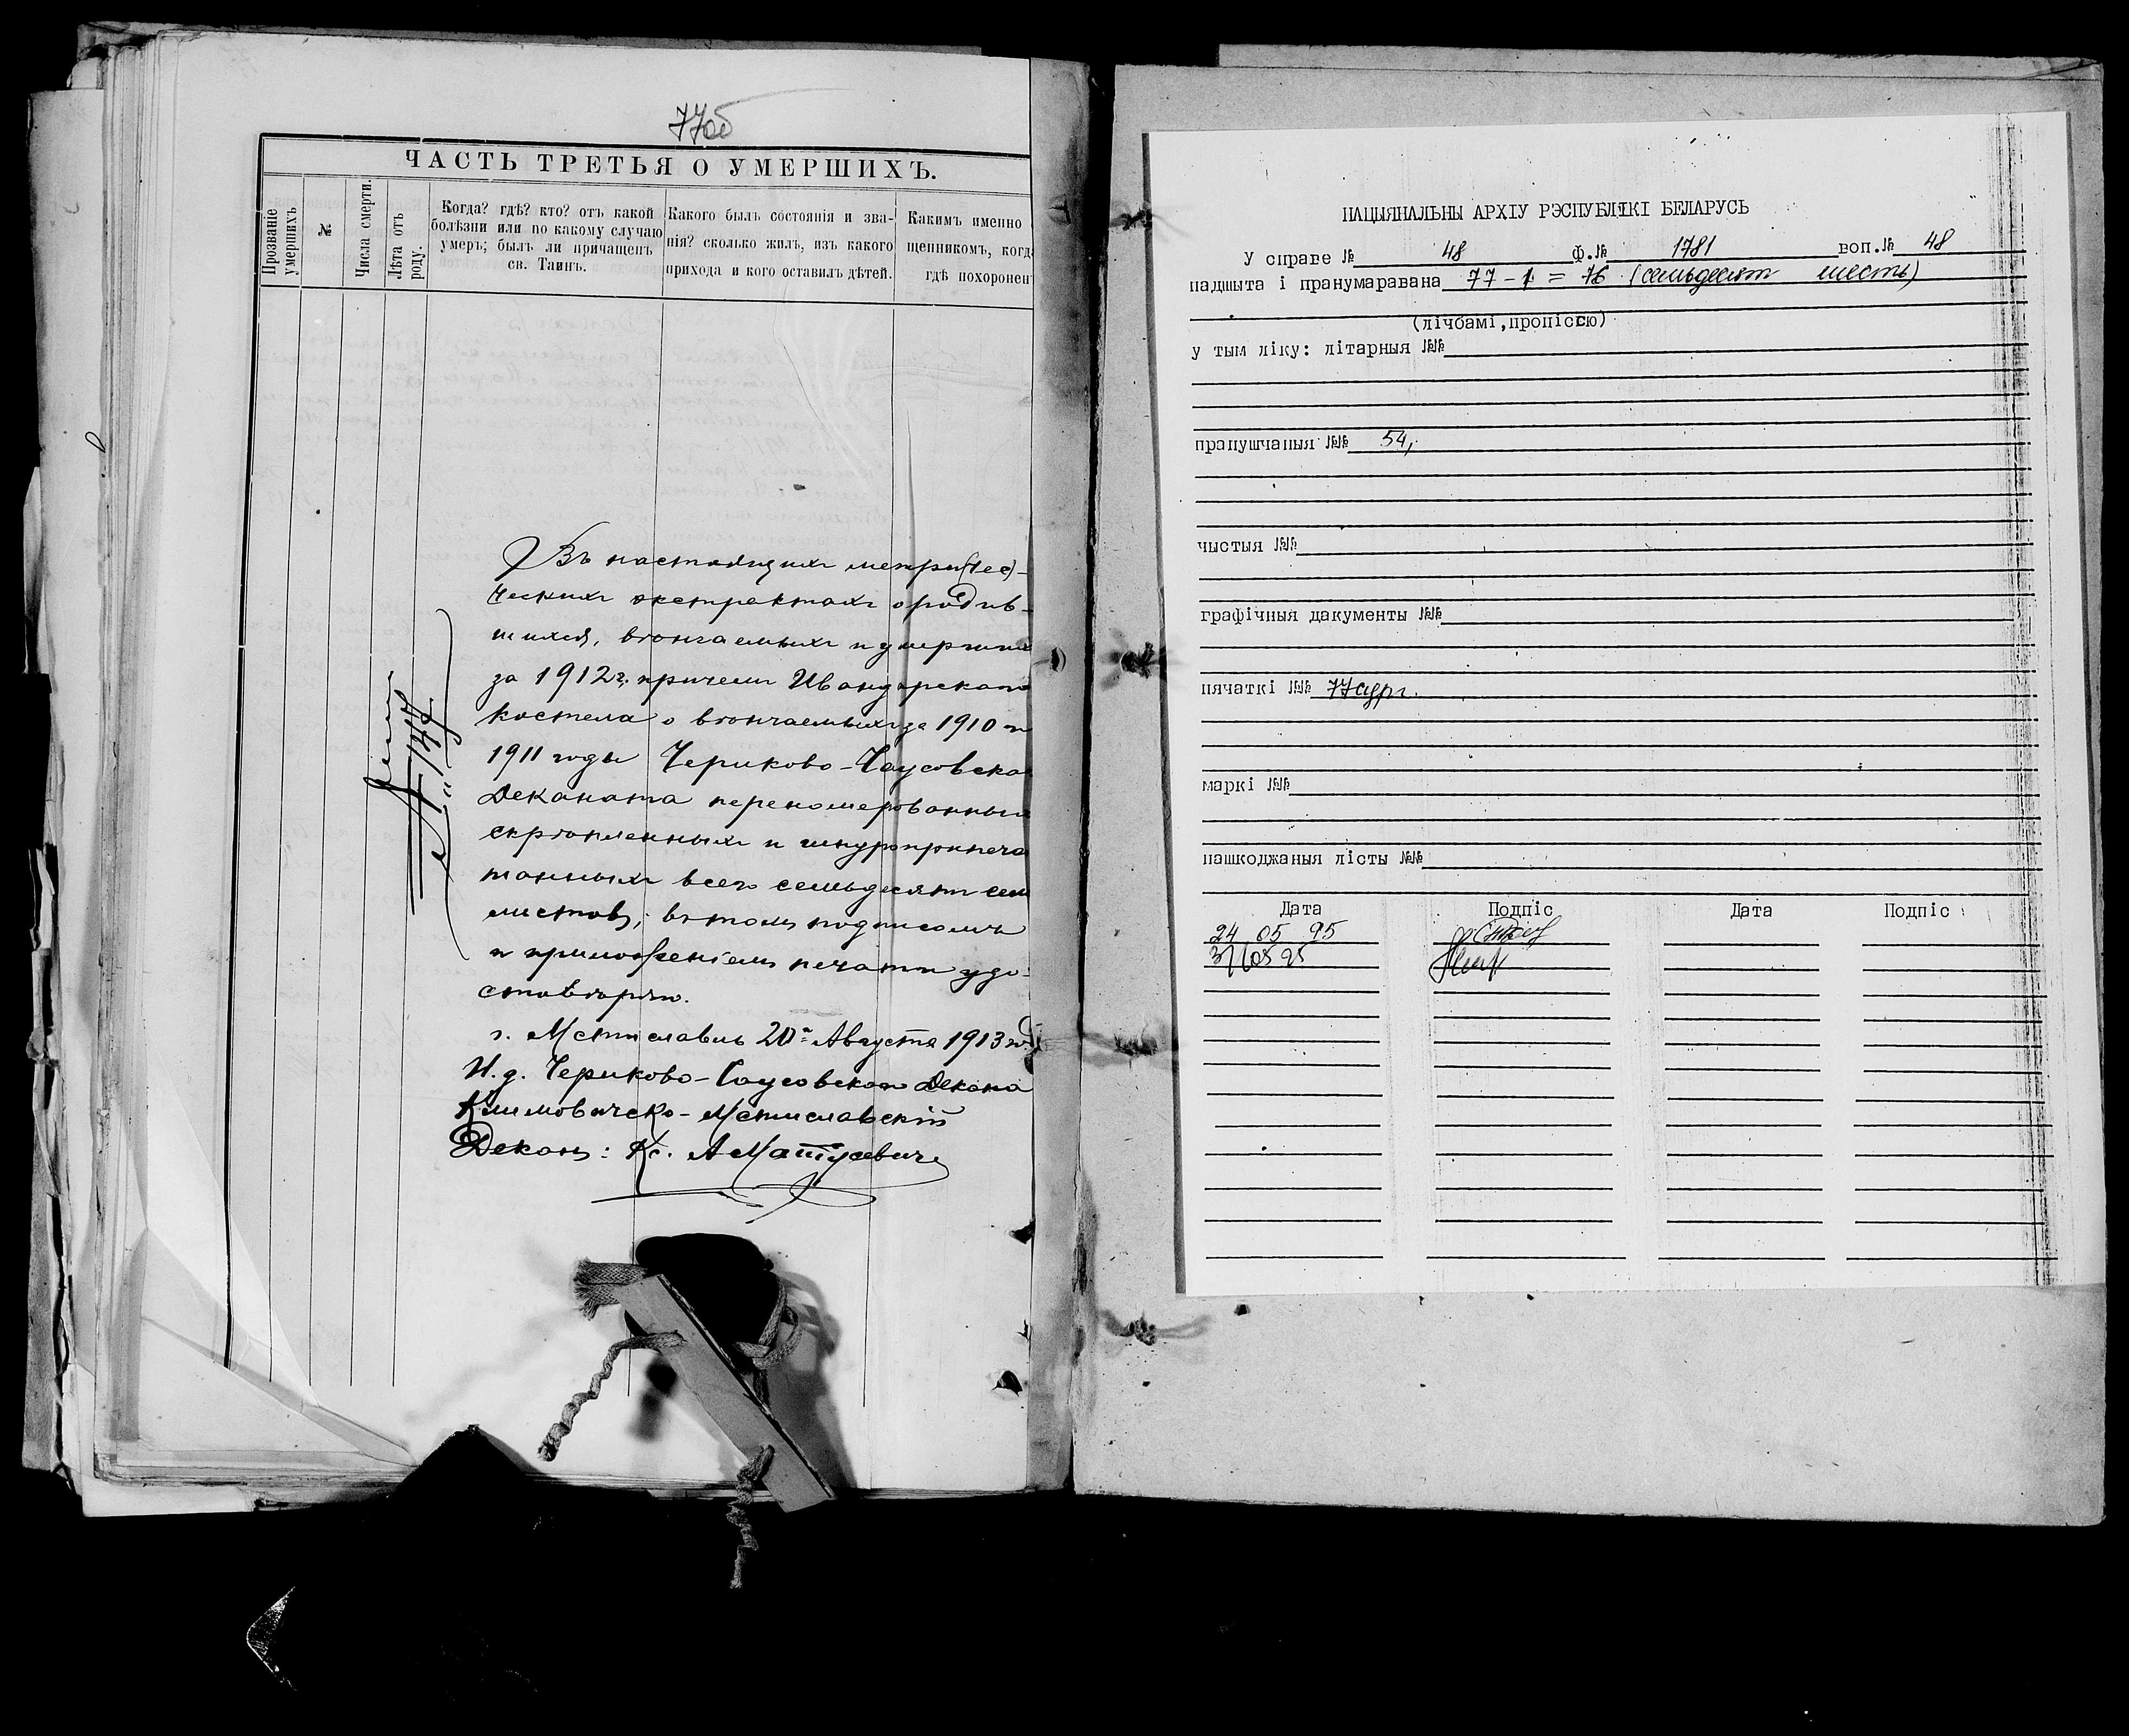 77об
ЧАСТЬ ТРЕТЬЯ О УМЕРШИХЪ.
Прозваніе умершихъ
№
Числа смерти.
Лѣта отъ роду.
Когда? гдѣ? кто? отъ какой
болѣзни или по какому случаю
умеръ; былъ ли причащенъ
св. Таинъ.
Какого былъ состоянія и зва-
нія? сколько жилъ, изъ какого
прихода и кого оставилъ дѣтей.
Каким именно
щенникомъ, когда
гдѣ похоронен
Въ настоящихъ метри(чес)-
ческихъ экстрактахъ о родив-
шихся, вѣнчаемыхъ и умерших
за 1912 г, причемъ
костела о вѣнчаемыхъ за 1910 и
1911 годы Чериково-Чаусовска
Деканата перенομерованных
скрѣпленныхъ и шнуроприпеча
танныхъ всего семьдесят сем
листовъ, въ томъ подписомъ
и приложеніемъ печати удо-
стовѣряю.
г. Мстиславль 20 Августа 1913 г.
И. д. Чериково-Чаусовскаго Декана
Климовичско-Мстиславскій
Деканъ: Кс. А Матусевичъ
№ 1248
НАЦЫЯНАЛЬНЫ АРХІУ РЭСПУБЛІКІ БЕЛАРУСЬ
У справе № 48 Ф.№ 1781 воп.№ 48
падшыта і пранумаравана 77-1 = 76 (семьдесят шесть)
(лічбамі,пропіссю)
у тым ліку: літарныя №№
прапушчаныя №№ 54,
чыстыя №№
графічныя дакументы №№
пячаткі №№ 77сург.
маркі №№
пашкоджаныя лісты №№
Дата Подпіс Дата Подпіс
24 05 95
31 05 95